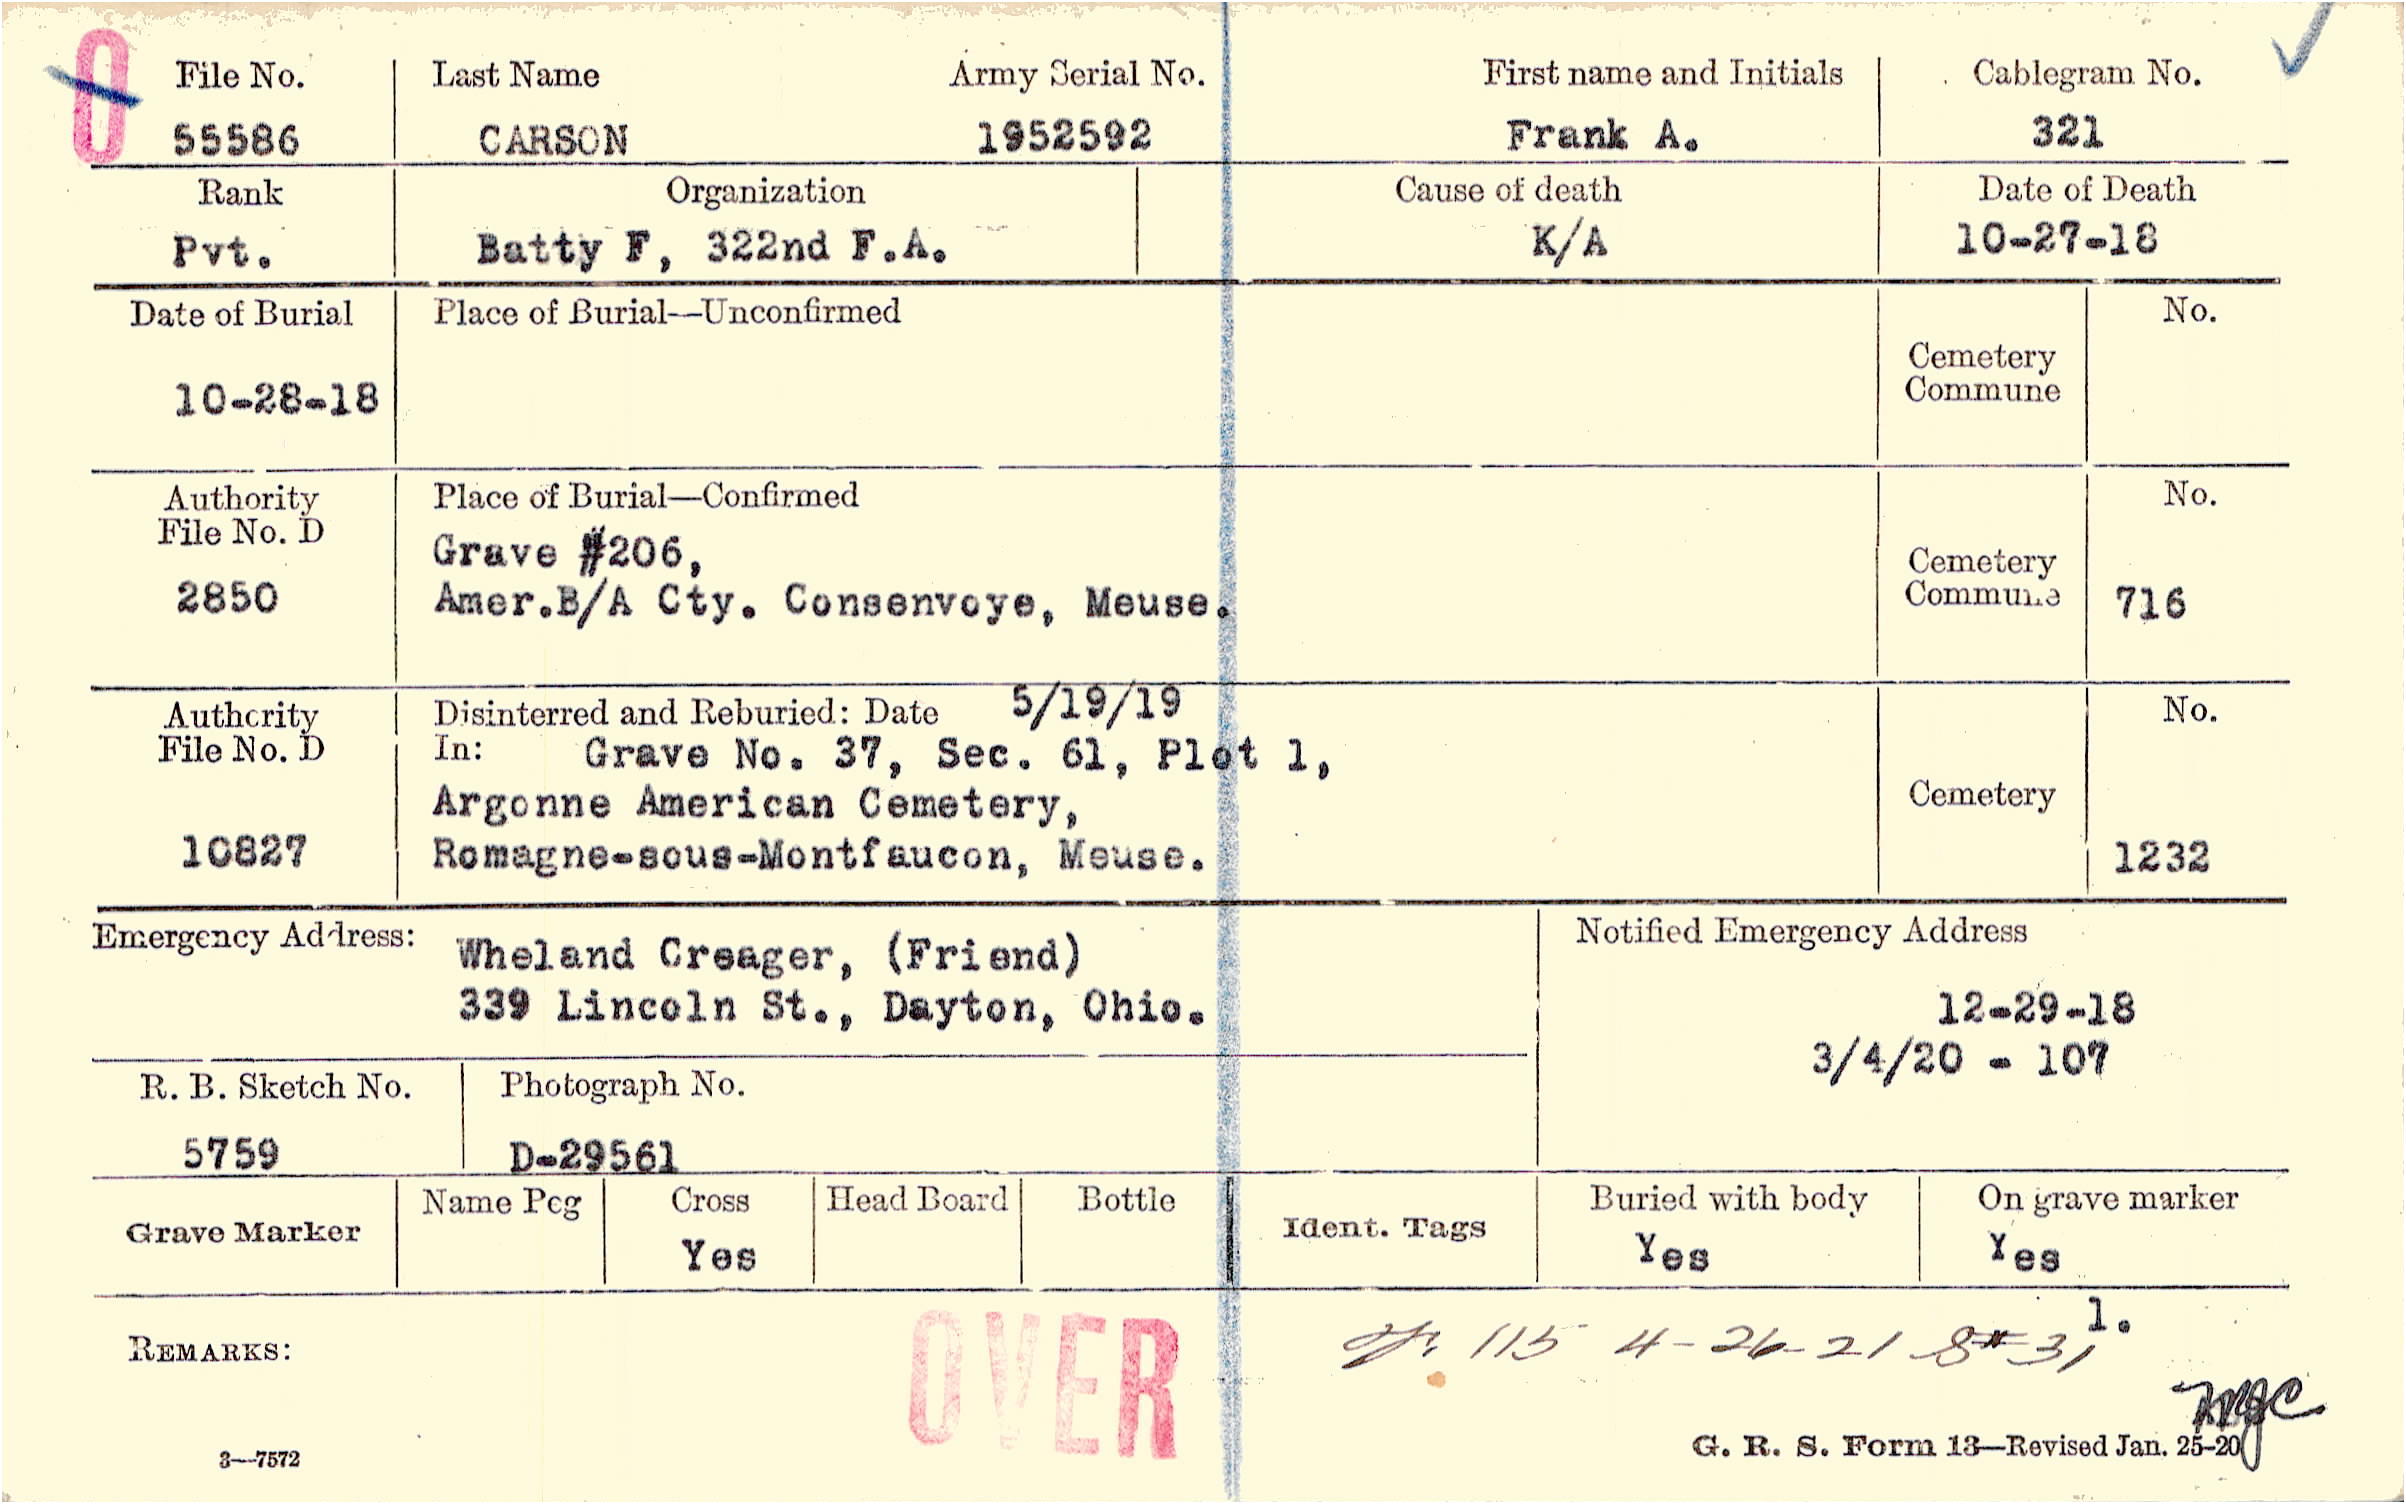 O
File No. Last Name Army Serial No. First name and Initials Cablegram No.
55586 CARSON 1952592 Frank A. 321
Rank Organization Cause of death Date of Death
Pvt. Batty F, 322nd F.A. K/A 10-27-18
Date of Burial Place of Burial—Unconfirmed No.
Cemetery
Commune
10-28-18
Authority Place of Burial—Confirmed No.
File No. D
Grave #206,
Cemetery
2850 Amer.B/A Cty. Consenvoye, Meuse. Commune 716
Authority Disinterred and Reburied: Date 5/19/19 No.
File No. D In: Grave No. 37, Sec. 61, Plot 1,
Argonne American Cemetery, Cemetery
10827 Romagne-sous-Montfaucon, Meuse. 1232
Emergency Address: Notified Emergency Address
Wheland Creager, (Friend)
339 Lincoln St., Dayton, Ohio. 12-29-18
3/4/20 - 107
R. B. Sketch No. Photograph No.
5759 D-29561
Grave Marker Name Peg Cross Head Board Bottle Ident. Tags Buried with body On grave marker
Yes Yes Yes
1.
REMARKS: OVER 115 4-26-21 S#3,
3—7572 G. R. S. Form 13—Revised Jan. 25-20